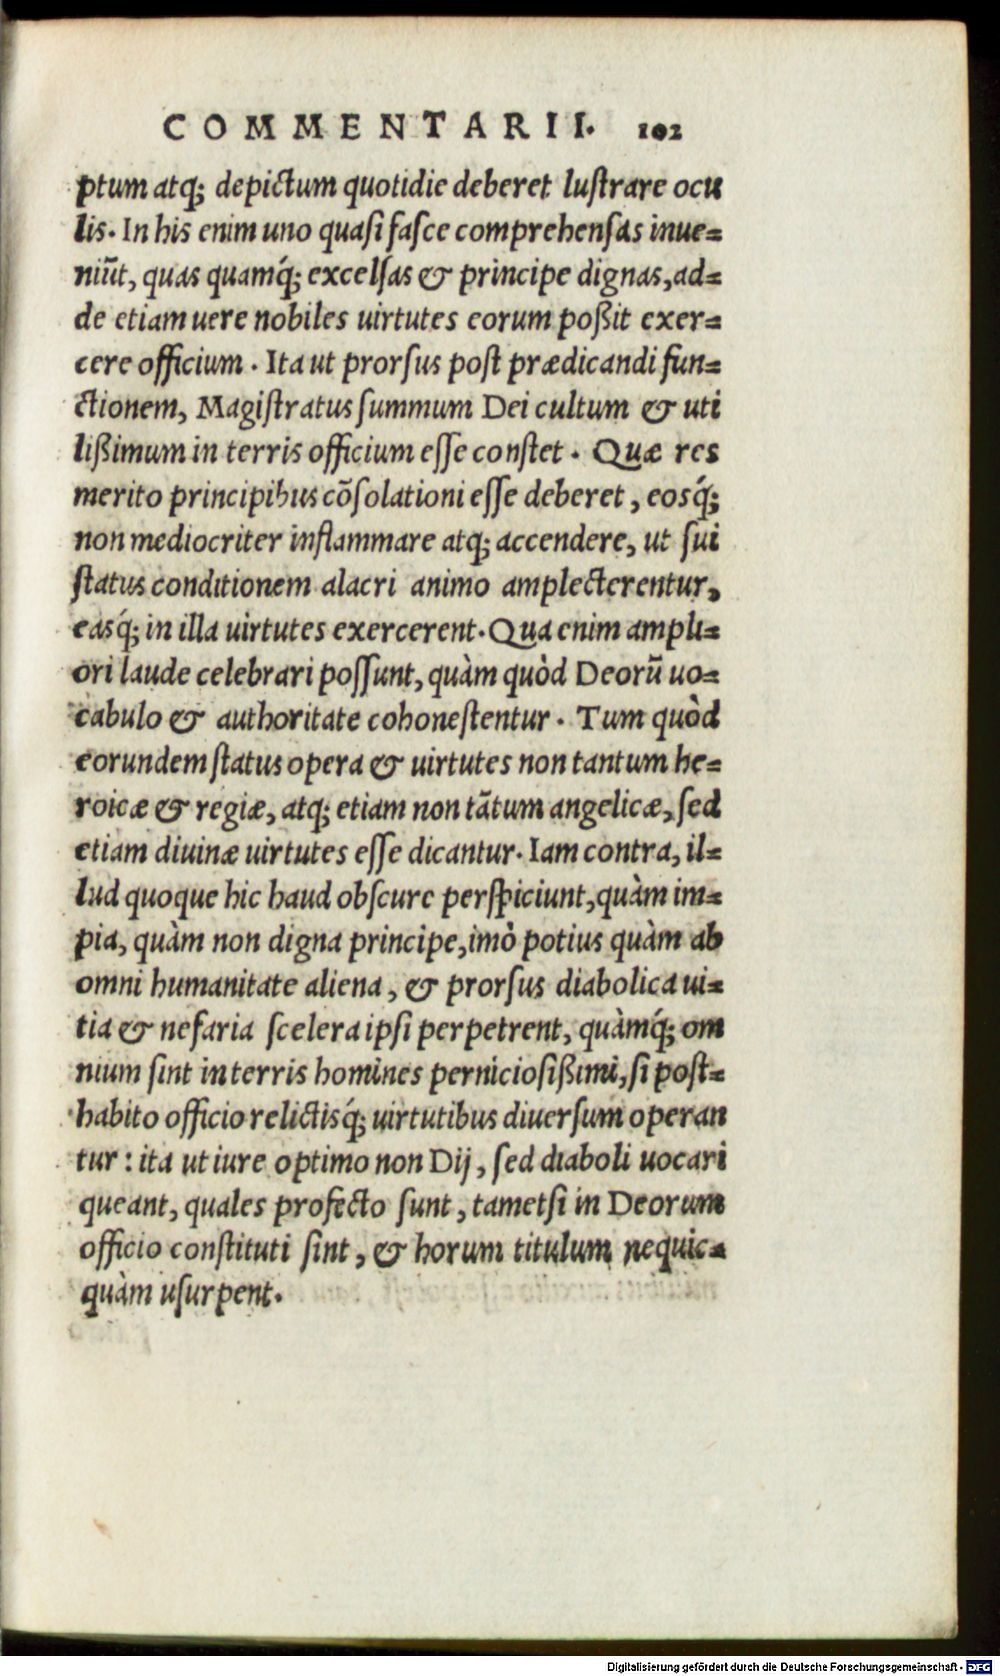 COMMENTARII. 102
ptum atq; depictum quotidie deberet luſtrare ocu
lis. In his enim uno quaſi faſce comprehenſas inue=
niũt, quas quamq́; excelſas & principe dignas, ad=
de etiam uere nobiles uirtutes eorum poßit exer=
cere officium. Ita ut prorſus poſt prædicandi fun=
ctionem, Magiſtratus ſummum Dei cultum & uti
lißimum in terris officium eſſe conſtet. Quæ res
merito principibus cõſolationi eſſe deberet, eosq́;
non mediocriter inflammare atq; accendere, ut ſui
ſtatus conditionem alacri animo amplecterentur,
easq́; in illa uirtutes exercerent. Qua enim ampli=
ori laude celebrari poſſunt, quàm quòd Deorũ uo=
cabulo & authoritate cohoneſtentur. Tum quòd
eorundem ſtatus opera & uirtutes non tantum he=
roicæ & regiæ, atq; etiam non tãtum angelicæ, ſed
etiam diuinæ uirtutes eſſe dicantur. Iam contra, il=
lud quoque hic haud obſcure perſpiciunt, quàm im=
pia, quàm non digna principe, imò potius quàm ab
omni humanitate aliena, & prorſus diabolica ui=
tia & nefaria ſcelera ipſi perpetrent, quàmq́; om
nium ſint in terris homines pernicioſißimi, ſi poſt=
habito officio relictisq́; uirtutibus diuerſum operan
tur: ita ut iure optimo non Dij, ſed diaboli uocari
queant, quales profecto ſunt, tametſi in Deorum
officio conſtituti ſint, & horum titulum nequic=
quàm uſurpent.
Digitalisierung gefördert durch die Deutsche Forschungsgemeinschaft - DFG